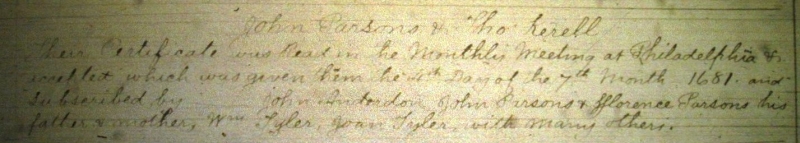 John Parsons & Tho Kerell
Their Certificate was Read in the Monthly Meeting at Philadelphia &
accepted which was given them the 4th Day of the 7th Month 1681. and
subscribed by John Anderdon, John Pirsons & fflorence Parsons his
father & mother, Wm Tyler, Joan Tyler, with many others.